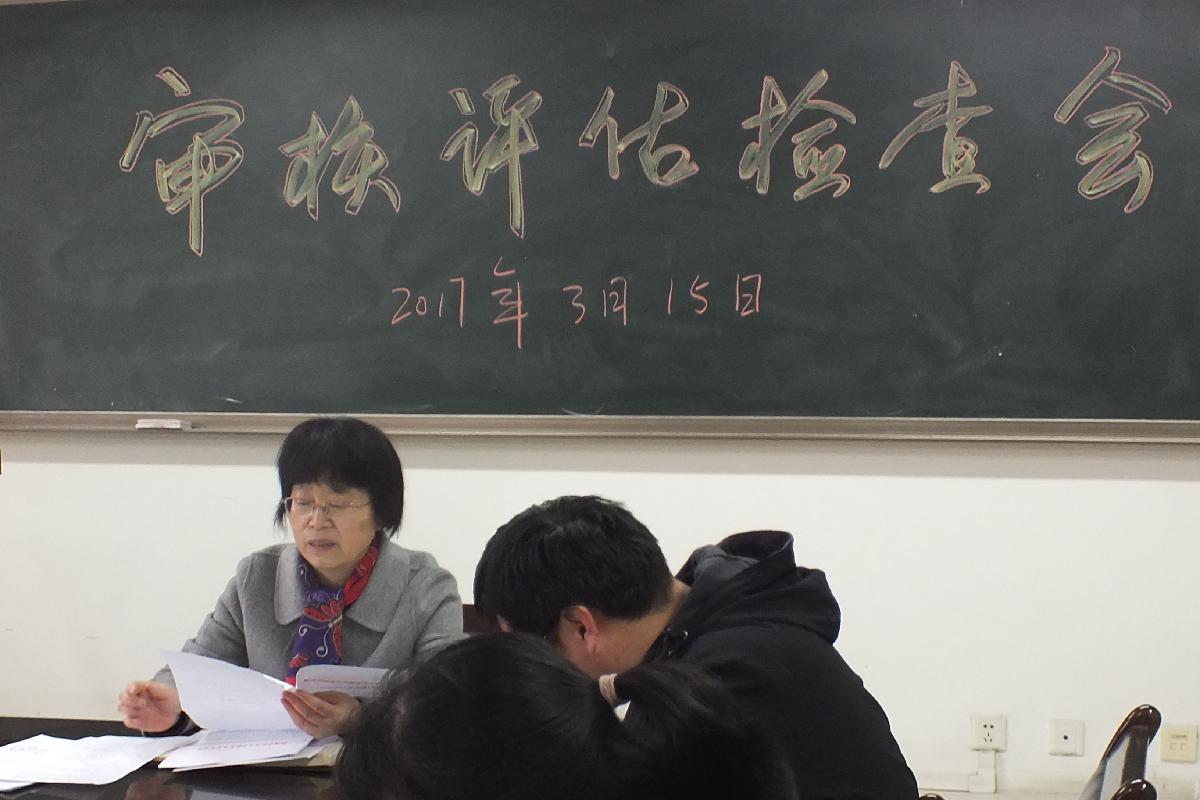 审核评估检查会
2017年3月15日